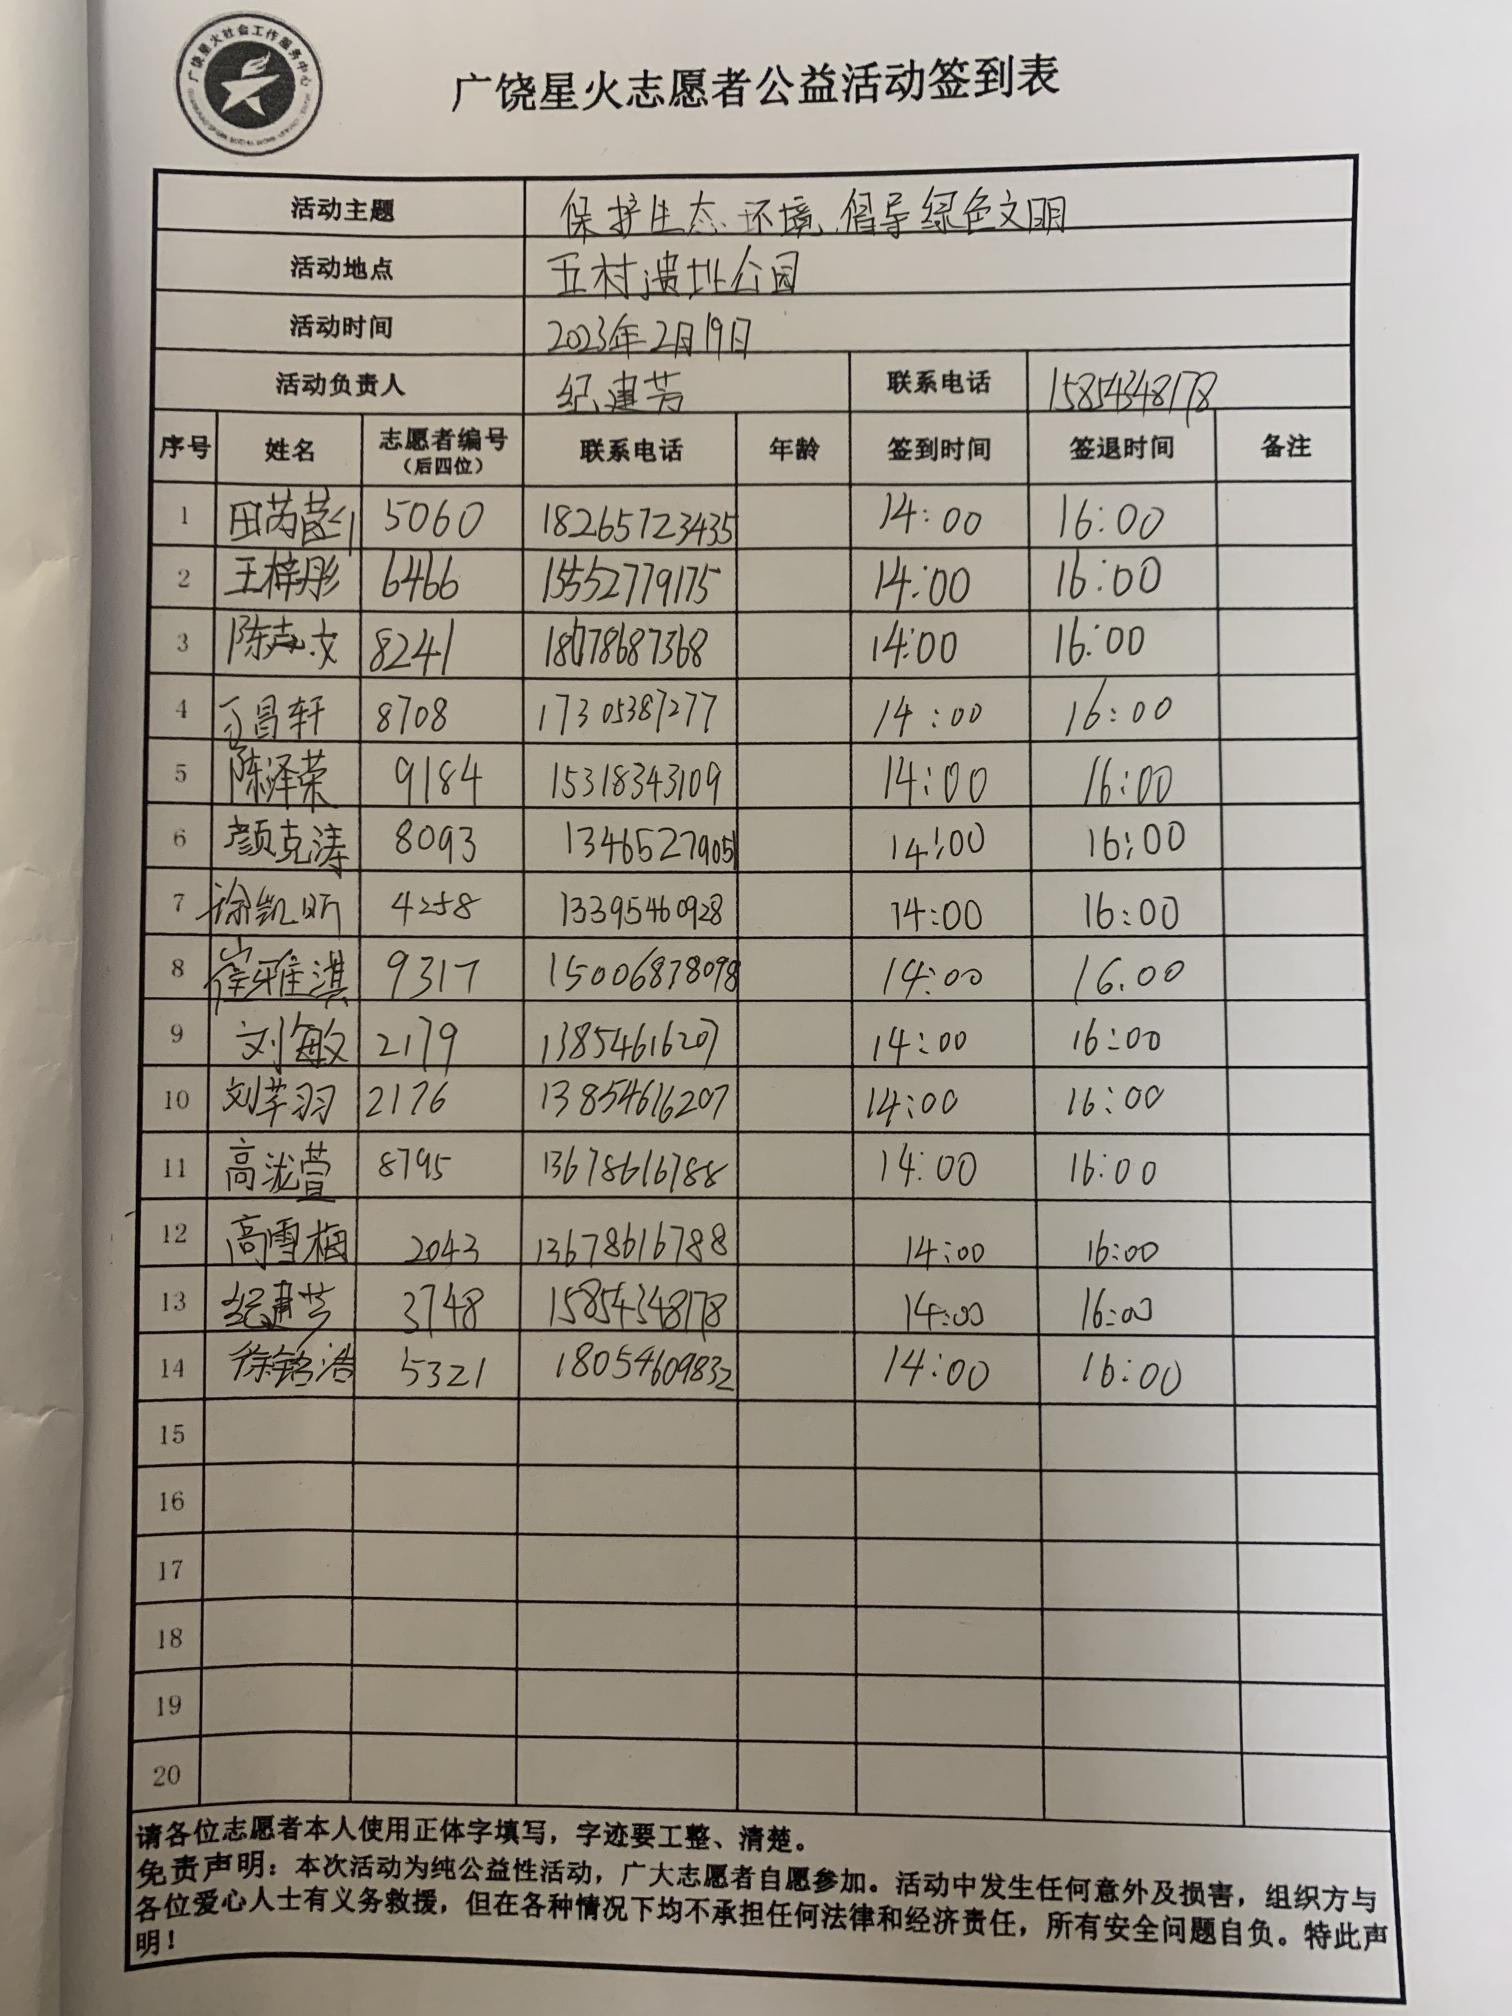 广饶星火社会工作服务中心
广饶星火志愿者公益活动签到表
活动主题 保护生态环境,倡导绿色文明
活动地点 五村遗址公园
活动时间 2023年2月19日
活动负责人 纪建芳 联系电话 15854348178
序号 姓名 志愿者编号（后四位） 联系电话 年龄 签到时间 签退时间 备注
1 田芮 5060 18265723435 14:00 16:00
2 王梓彤 6466 15552779175 14:00 16:00
3 陈 文 8241 18678687368 14:00 16:00
4 昌轩 8708 17305387277 14:00 16:00
5 陈泽荣 9184 15318343109 14:00 16:00
6 颜克涛 8093 13465279051 14:00 16:00
7 徐凯昕 4258 13395460928 14:00 16:00
8 崔雅淇 9317 15006878098 14:00 16.00
9 刘敏 2179 13854616207 14:00 16:00
10 刘芊羽 2176 13854616207 14:00 16:00
11 高泷萱 8795 13678616788 14:00 16:00
12 高雪梅 2043 13678616788 14:00 16:00
13 纪建芳 3748 15854348178 14:00 16:00
14 徐铭浩 5321 18054609832 14:00 16:00
15
16
17
18
19
20
请各位志愿者本人使用正体字填写，字迹要工整、清楚。
免责声明：本次活动为纯公益性活动，广大志愿者自愿参加。活动中发生任何意外及损害，组织方与
各位爱心人士有义务救援，但在各种情况下均不承担任何法律和经济责任，所有安全问题自负。特此声
明！